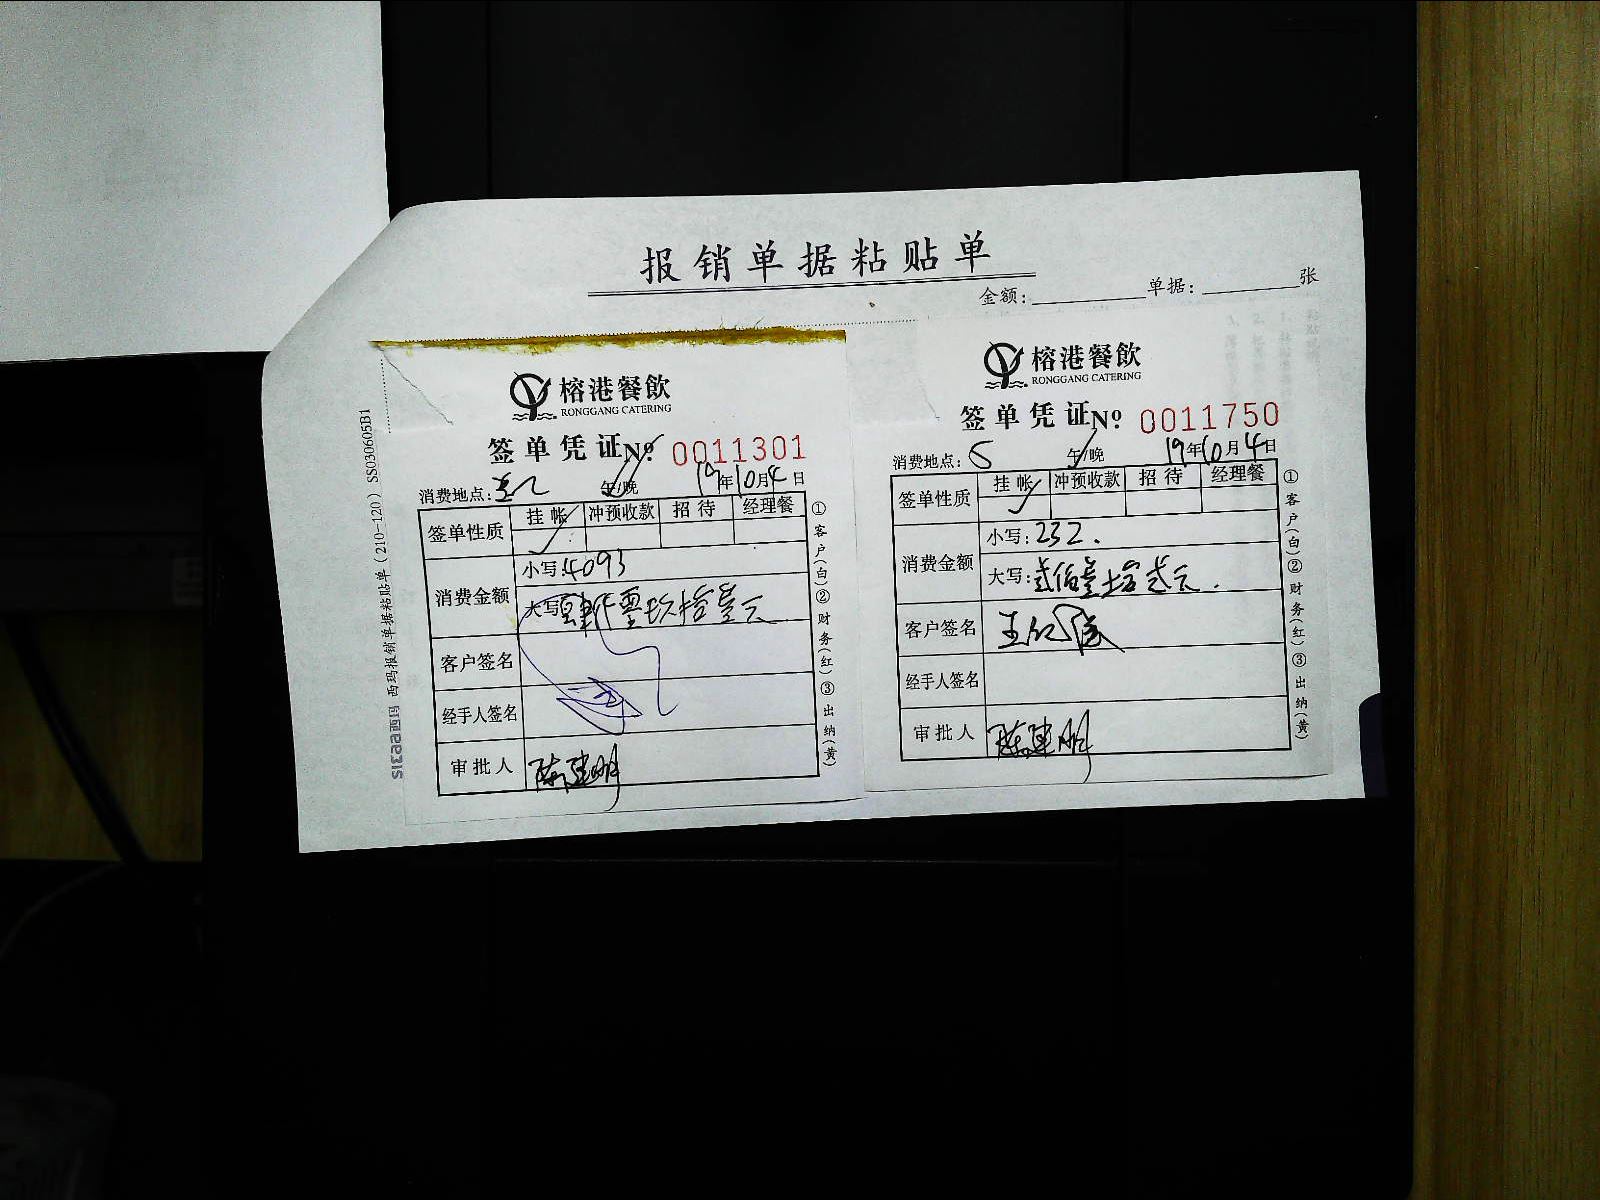 报销单据粘贴单
金额：
单据：
张
SS030605B1
西玛报销单据粘贴单（210-120）
simaa西玛
榕港餐飲
RONGGANG CATERING
签单凭证No. 0011301
消费地点：
午/晚 19年10月4日
签单性质 挂帐 冲预收款 招待 经理餐
消费金额 小写：4093
大写：肆仟零玖拾叁元
客户签名
经手人签名
审批人 陈建明
①客户（白）②财务（红）③出纳（黄）
榕港餐飲
RONGGANG CATERING
签单凭证No. 0011750
消费地点：5 午/晚 19年10月4日
签单性质 挂帐 冲预收款 招待 经理餐
消费金额 小写：232.
大写：贰佰叁拾贰元.
客户签名
经手人签名
审批人 陈建明
①客户（白）②财务（红）③出纳（黄）